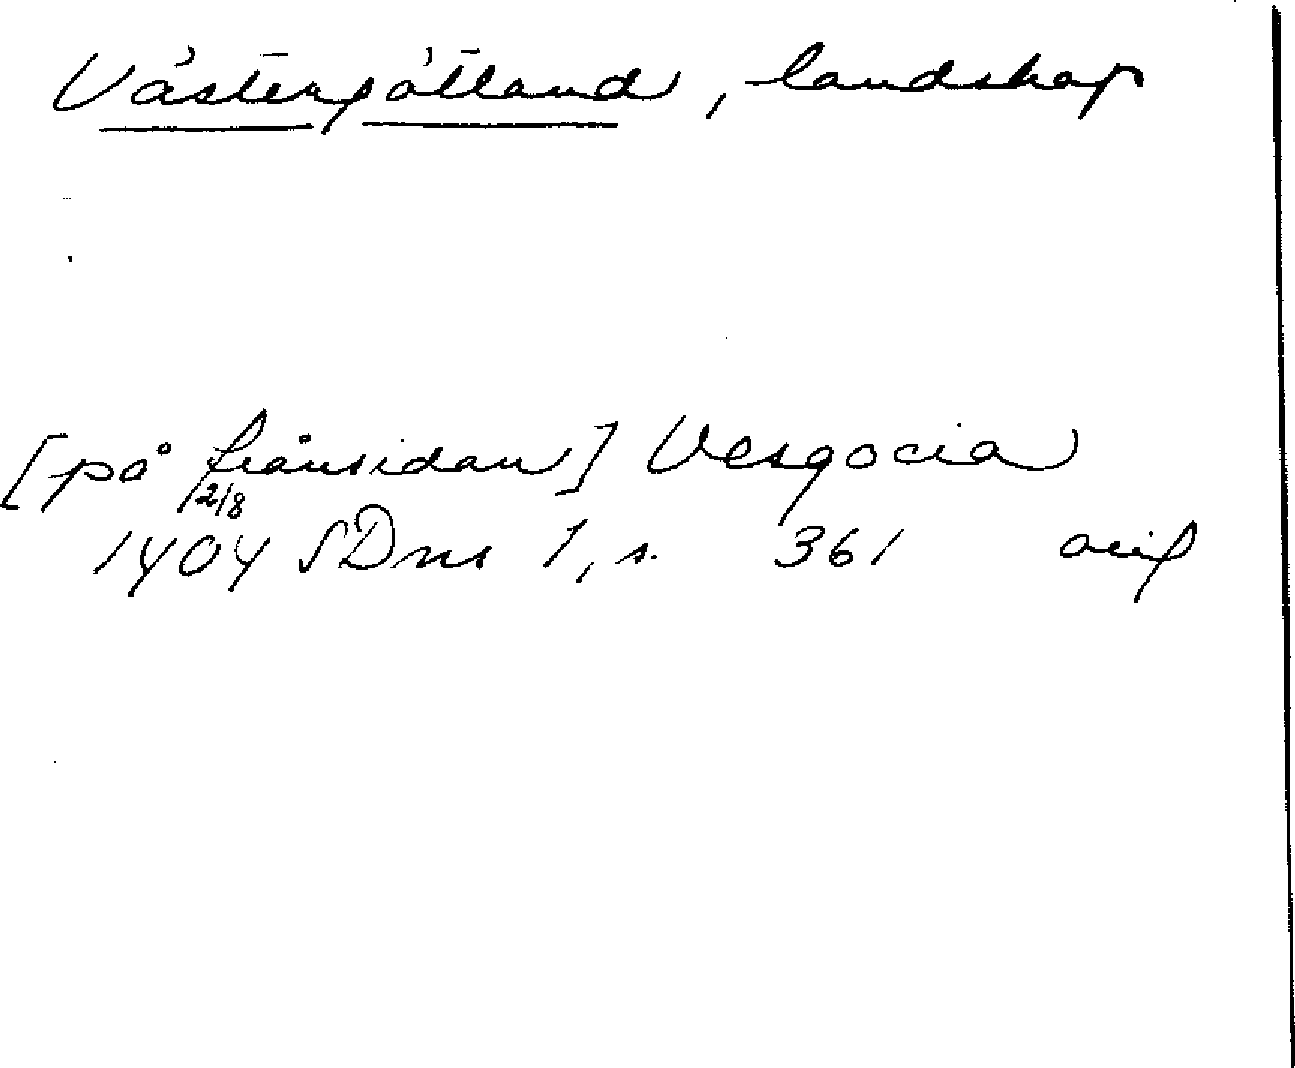 Västergötland, landskap
[på frånsidan] Vesgocia
2/8
1404 SDns 1, s. 361 orig